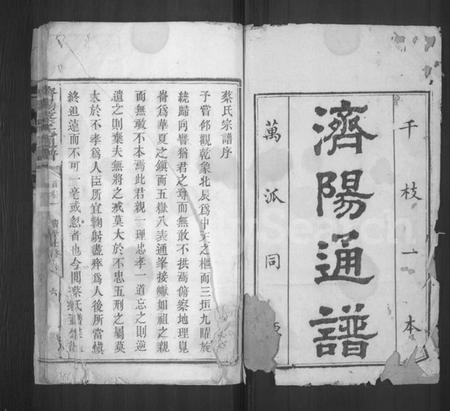 千枝一本
濟陽通譜
萬派同
蔡氏宗譜序
予嘗仰觀乾象北辰為中天之樞而三垣九曜旋
繞歸向譬猶君之尊而無敢不拱焉俯察地理崑
崙為華夏之鎮而五嶽八柒通峯接嶽如祖之親
而無敢不本焉此君親一理忠孝一道忘之則逆
遺之則棄夫無將之戒莫大於不忠五刑之屬莫
大於不孝為人臣所宜鞠躬盡瘁為人後所當慎
終追遠而不可一毫或忽者也今閱蔡氏